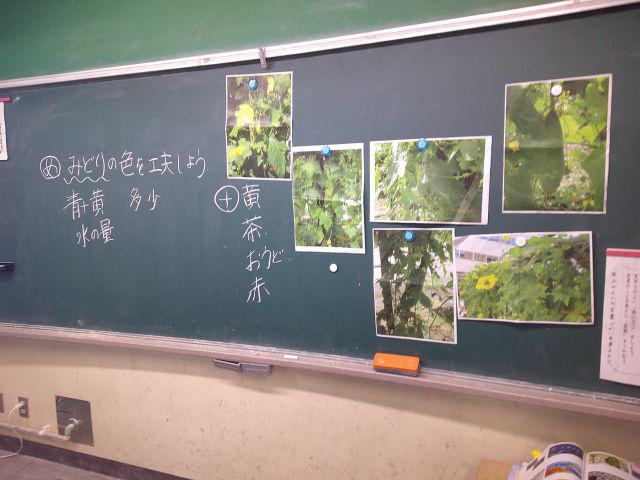 め みどりの色を工夫しよう
青+黄 多少
水の量
+ 黄
茶
おうど
赤